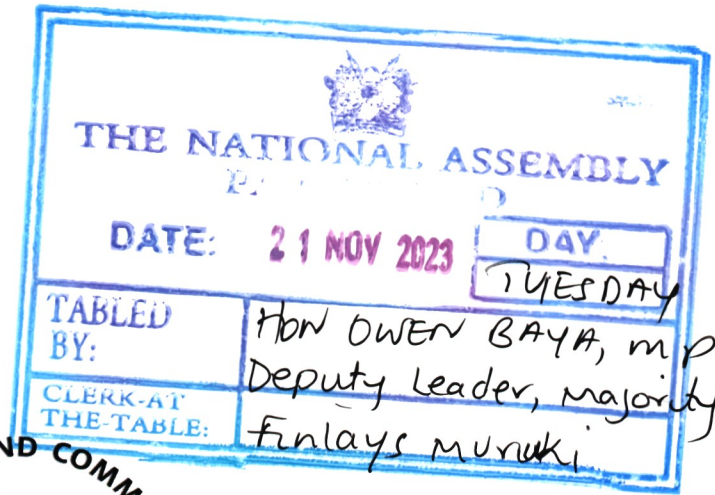 THE NATIONAL ASSEMBLY
DATE: 21 NOV 2023 DAY.
TUESDAY
TABLED BY:
HON OWEN BAYA, MP
Deputy Leader, Majority
CLERK-AT THE-TABLE:
Finlays Munuki
ND COMM